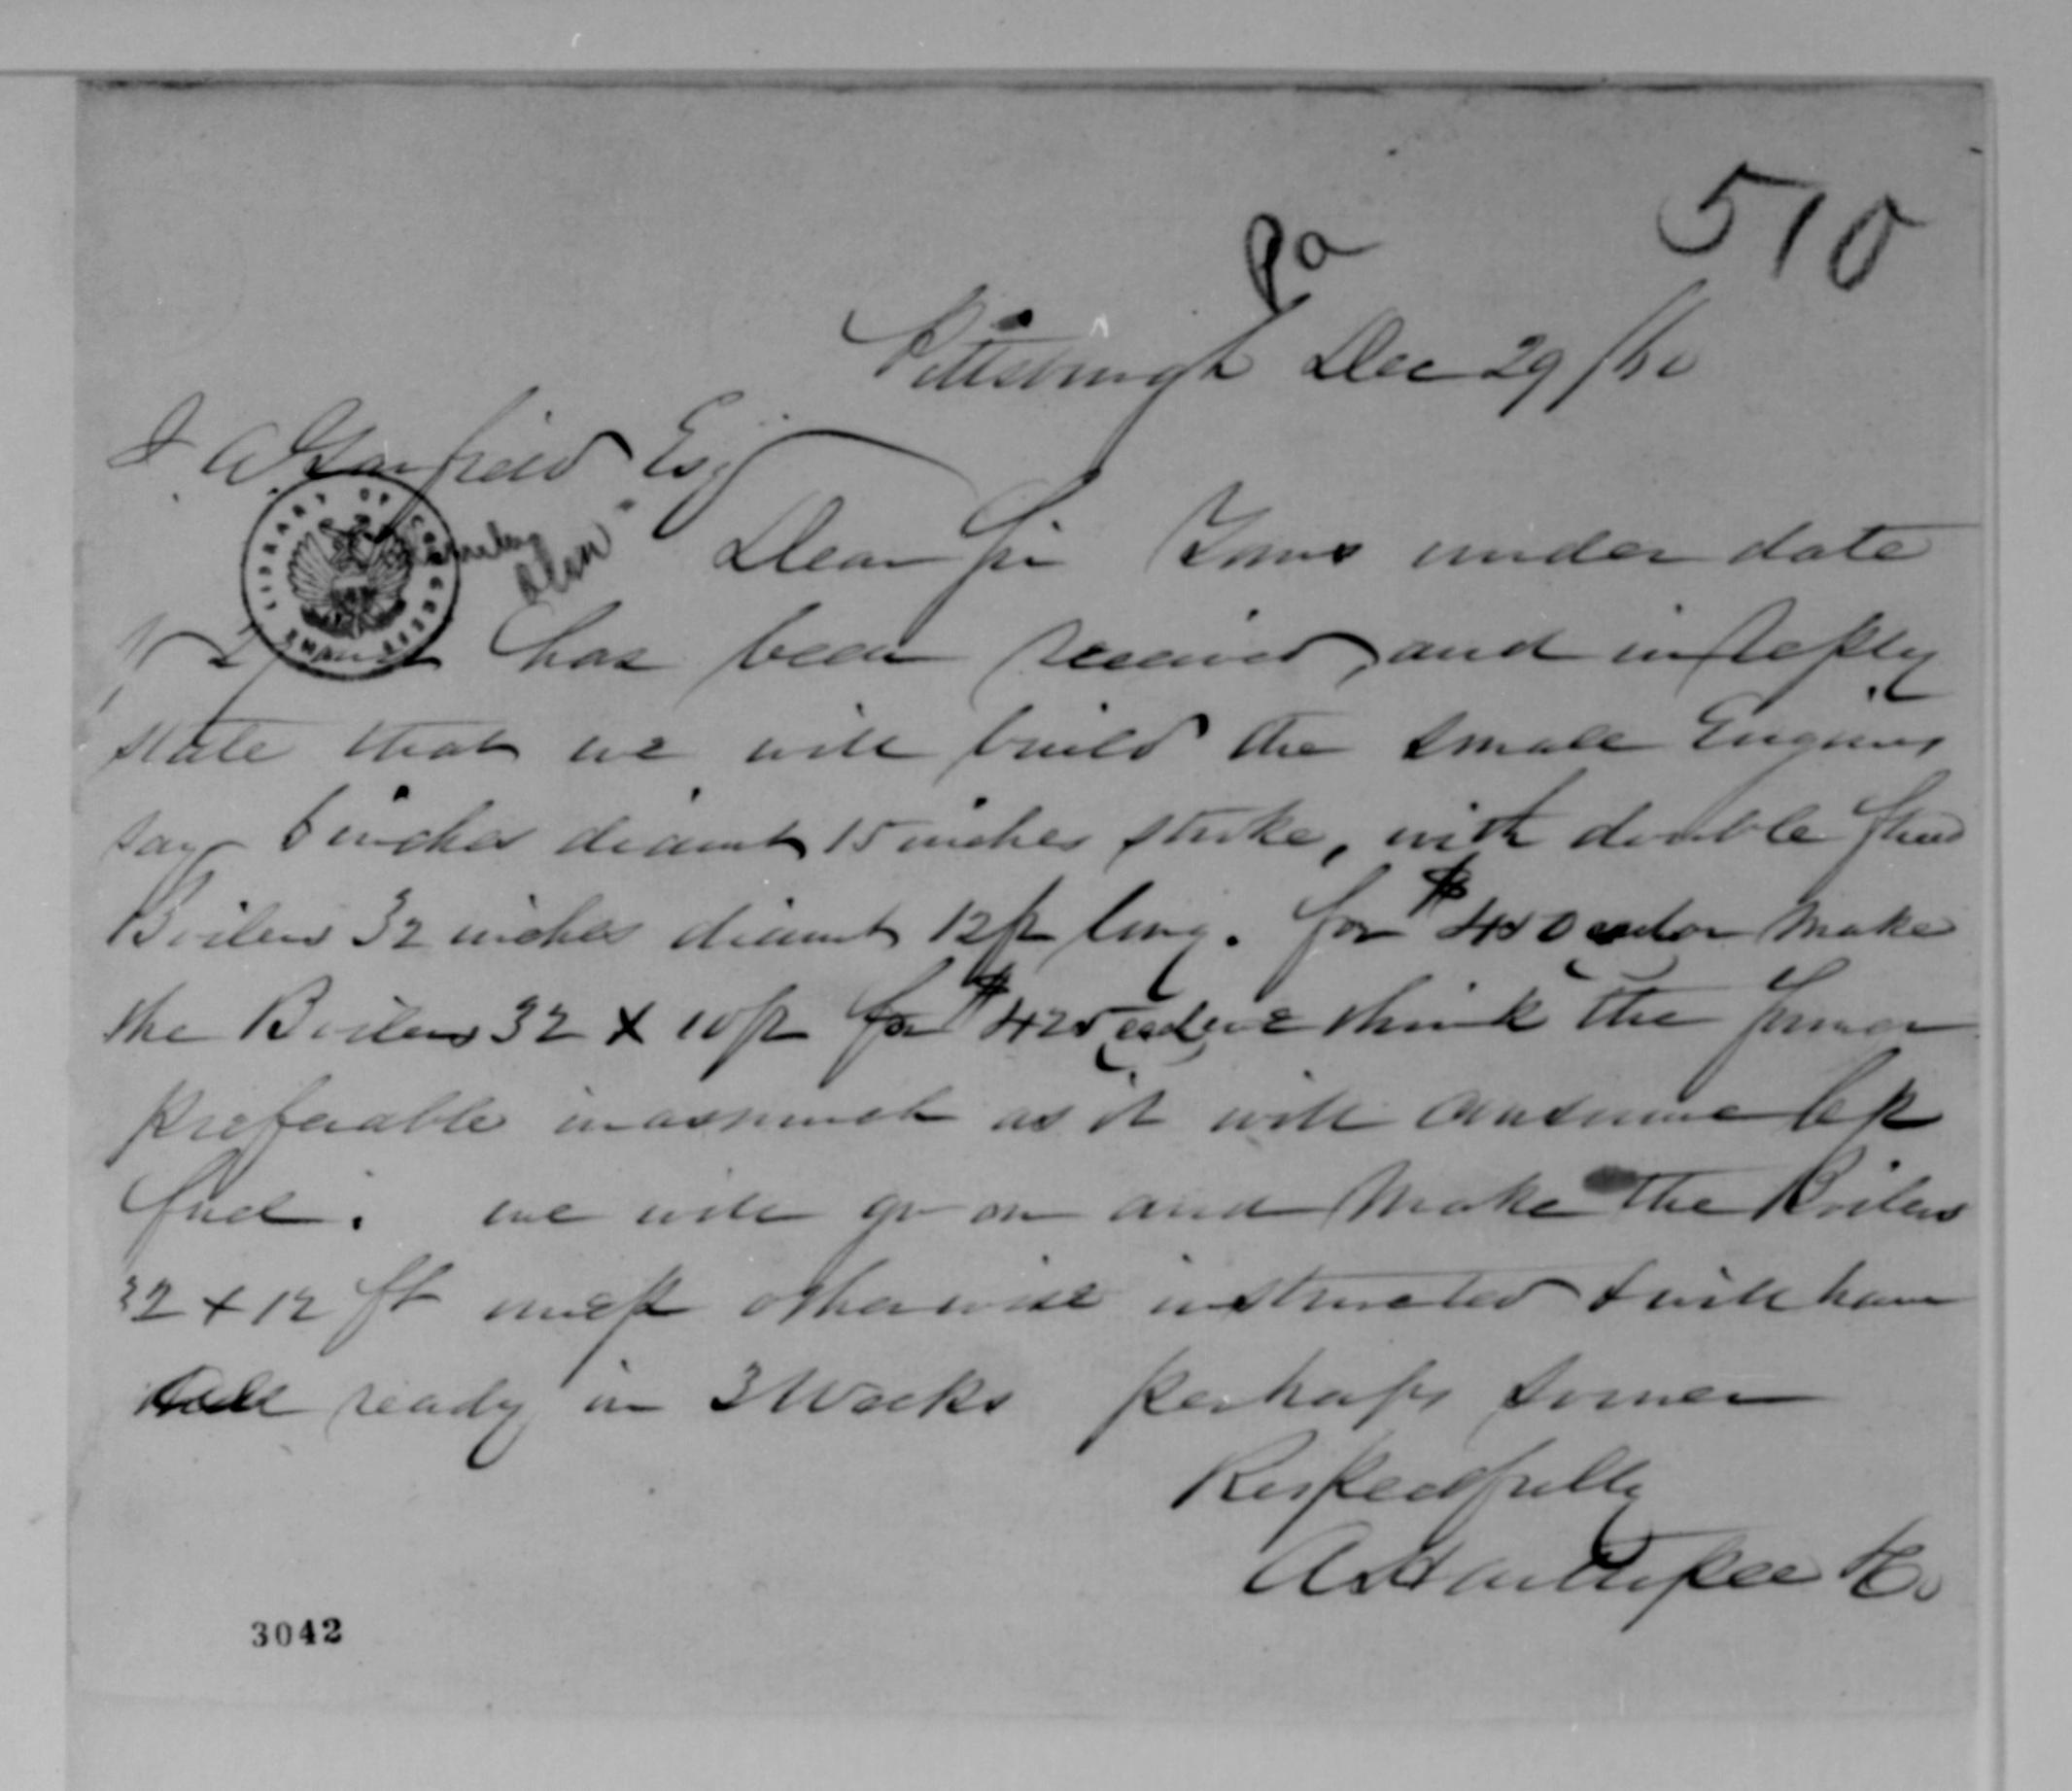 510
Pa
Pittsburgh Dec 29 /60
J. A. Garfield Esq
LIBRARY OF CONGRESS
Dear Sir Yours under date
of has been received, and in reply
state that we will build the small Engines
say 6 inches diamt 15 inches stroke, with double flued
Boilers 32 inches diamt 12 ft long. for $450 each or make
the Boilers 32 x 10 ft for $425 each we think the former
preferable inasmuch as it will consume less
fuel. we will go on and make the Boilers
32 x 12 ft unless otherwise instructed & will have
all ready in 3 Weeks perhaps sooner
Respectfully
& Co
3042